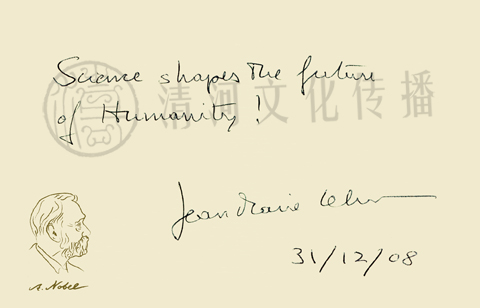 Science shapes the future
of Humanity!
清河文化传播
Jean Marie Lehn
31/12/08
A. Nobel